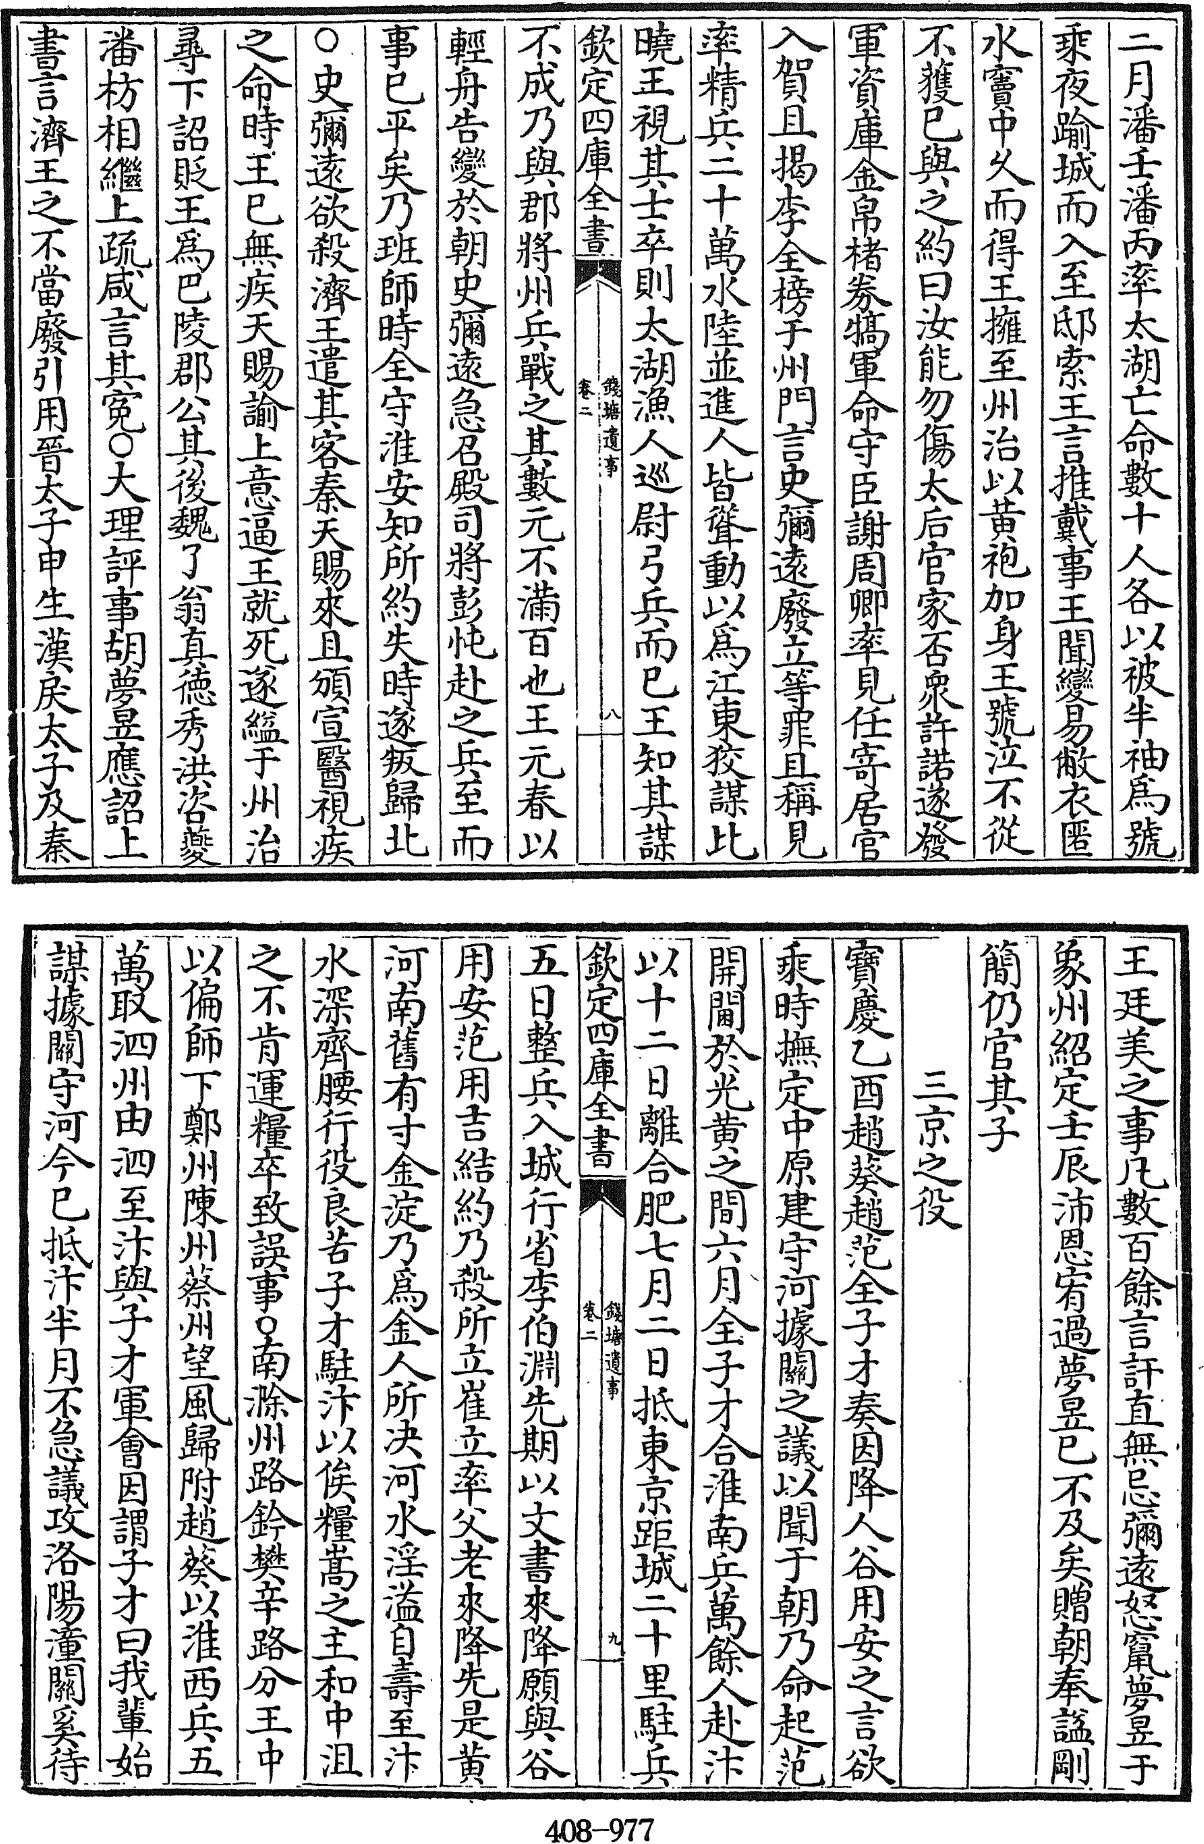 二月潘壬潘丙率太湖亡命數十人各以被半袖爲號
乘夜踰城而入至邸索王言推戴事王聞變易敝衣匿
水竇中乆而得王擁至州治以黄袍加身王號泣不從
不獲已與之約曰汝能勿傷太后官家否衆許諾遂發
軍資庫金帛楮券犒軍命守臣謝周卿率見任寄居官
入賀且揭李全榜于州門言史彌遠廢立等罪且稱見
率精兵二十萬水陸並進人皆聳動以爲江東狡謀比
曉王視其士卒則太湖漁人巡尉弓兵而已王知其謀
欽定四庫全書
錢塘遺事
卷二
八
不成乃與郡將州兵戰之其數元不滿百也王元春以
輕舟告變於朝史彌遠急召殿司將彭忳赴之兵至而
事已平矣乃班師時全守淮安知所約失時遂叛歸北
○史彌遠欲殺濟王遣其客秦天賜來且頒宣醫視疾
之命時王已無疾天賜諭上意逼王就死遂縊于州治
尋下詔貶王爲巴陵郡公其後魏了翁真德秀洪咨夔
潘枋相繼上疏咸言其寃○大理評事胡夢昱應詔上
書言濟王之不當廢引用晉太子申生漢戾太子及秦
王廷美之事凡數百餘言訐直無忌彌遠怒竄夢昱于
象州紹定壬辰沛恩宥過夢昱已不及矣贈朝奉諡剛
簡仍官其子
三京之役
寶慶乙酉趙葵趙范全子才奏因降人谷用安之言欲
乘時撫定中原建守河據關之議以聞于朝乃命起范
開閫於光黄之間六月全子才合淮南兵萬餘人赴汴
以十二日離合肥七月二日抵東京距城二十里駐兵
欽定四庫全書
錢塘遺事
卷二
九
五日整兵入城行省李伯淵先期以文書來降願與谷
用安范用吉結約乃殺所立崔立率父老來降先是黄
河南舊有寸金淀乃爲金人所决河水淫溢自壽至汴
水深齊腰行役良苦子才駐汴以俟糧嵩之主和中沮
之不肯運糧卒致誤事○南滁州路鈐樊辛路分王中
以偏師下鄭州陳州蔡州望風歸附趙葵以淮西兵五
萬取泗州由泗至汴與子才軍會因謂子才曰我輩始
謀據關守河今已抵汴半月不急議攻洛陽潼關奚待
408-977